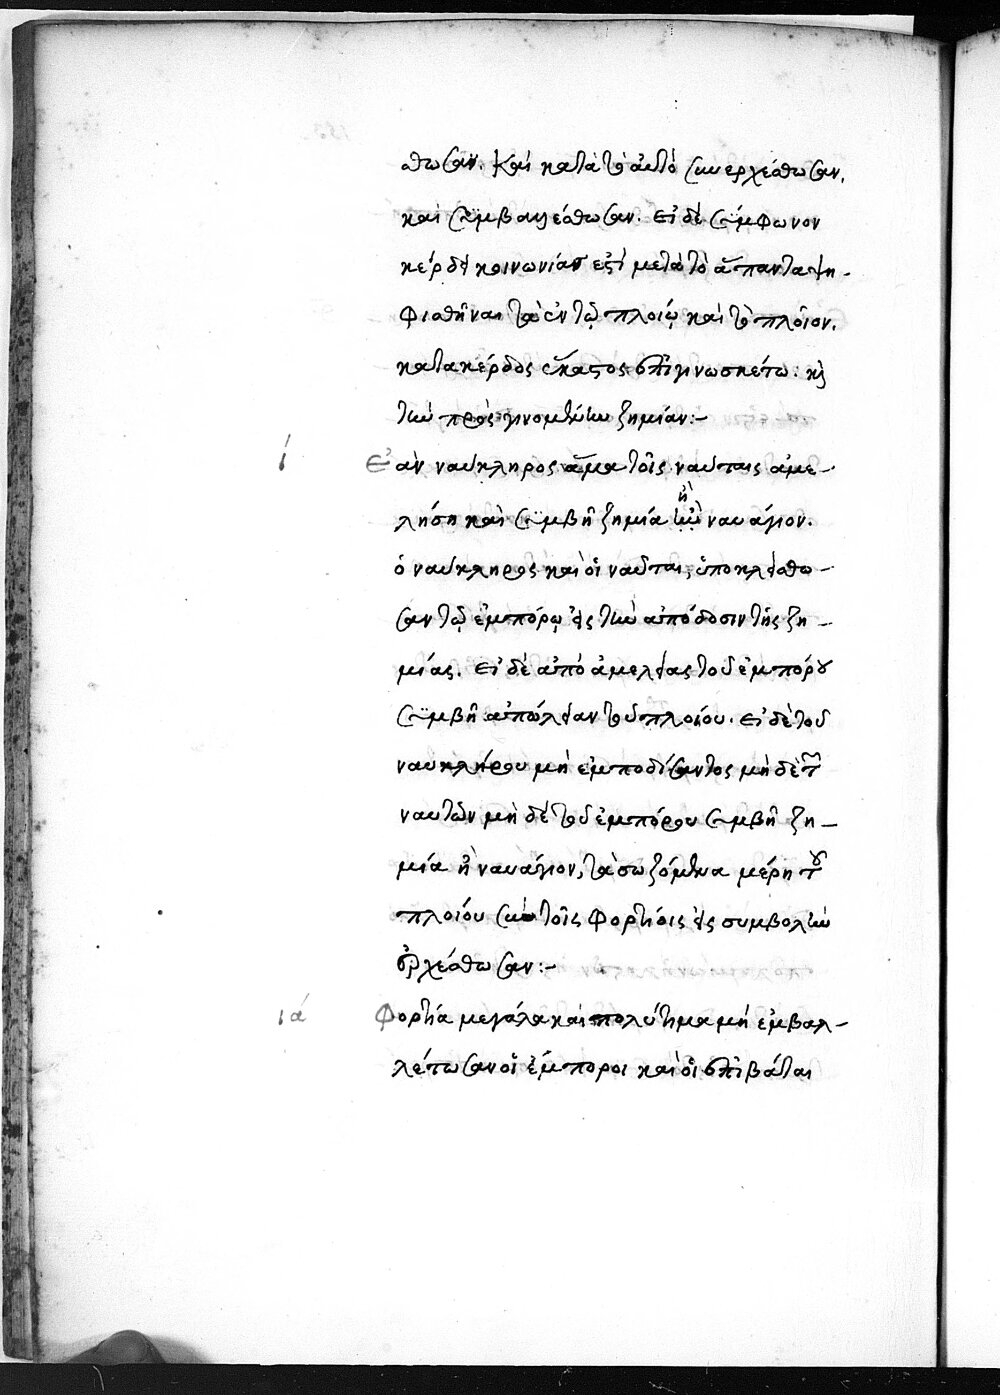 σθωσαν. Καὶ κατὰ τὸ αὐτὸ συνερχέσθωσαν.
καὶ συμβαλέσθωσαν. Εἰ δὲ σύμφωνον
κέρδει κοινωνίαν ἐξῇ μετὰ τὸ ἅπαντα ψη-
φισθῆναι τὰ ἐν τῷ πλοίῳ καὶ τὸ πλοῖον.
κατα κέρδος ἕκαστος ἐπιγινωσκέτω: κὶ
τὴν πρὸς γινομένην ζημίαν:-
ί Ἐὰν ναύκληρος ἅμα τοῖς ναύταις ἀμε-
λήσῃ καὶ συμβῇ ζημία ἢ ναυάγιον.
ὁ ναύκληρος καὶ οἱ ναῦται, ὑποκείσθω-
σαν τῷ ἐμπόρῳ εἰς τὴν ἀπόδοσιν τῆς ζη-
μίας. Εἰ δὲ ἀπὸ ἀμελείας τοῦ ἐμπόρου
συμβῇ ἀπώλειαν τοῦ πλοίου. Εἰ δὲ τοῦ
ναυκλήρου μὴ ἐμποδίσαντος μὴ δὲ τῶν
ναυτῶν μὴ δὲ τοῦ ἐμπόρου συμβῇ ζη-
μία ἢ ναυάγιον, τὰ σωζόμενα μέρη τοῦ
πλοίου σὺν τοῖς φορτίοις εἰς συμβολὴν
ἐρχέσθωσαν:-
ιά Φορτία μεγάλα καὶ πολύτιμα μὴ ἐμβαλ-
λέτωσαν οἱ ἔμποροι καὶ οἱ ἐπιβάται